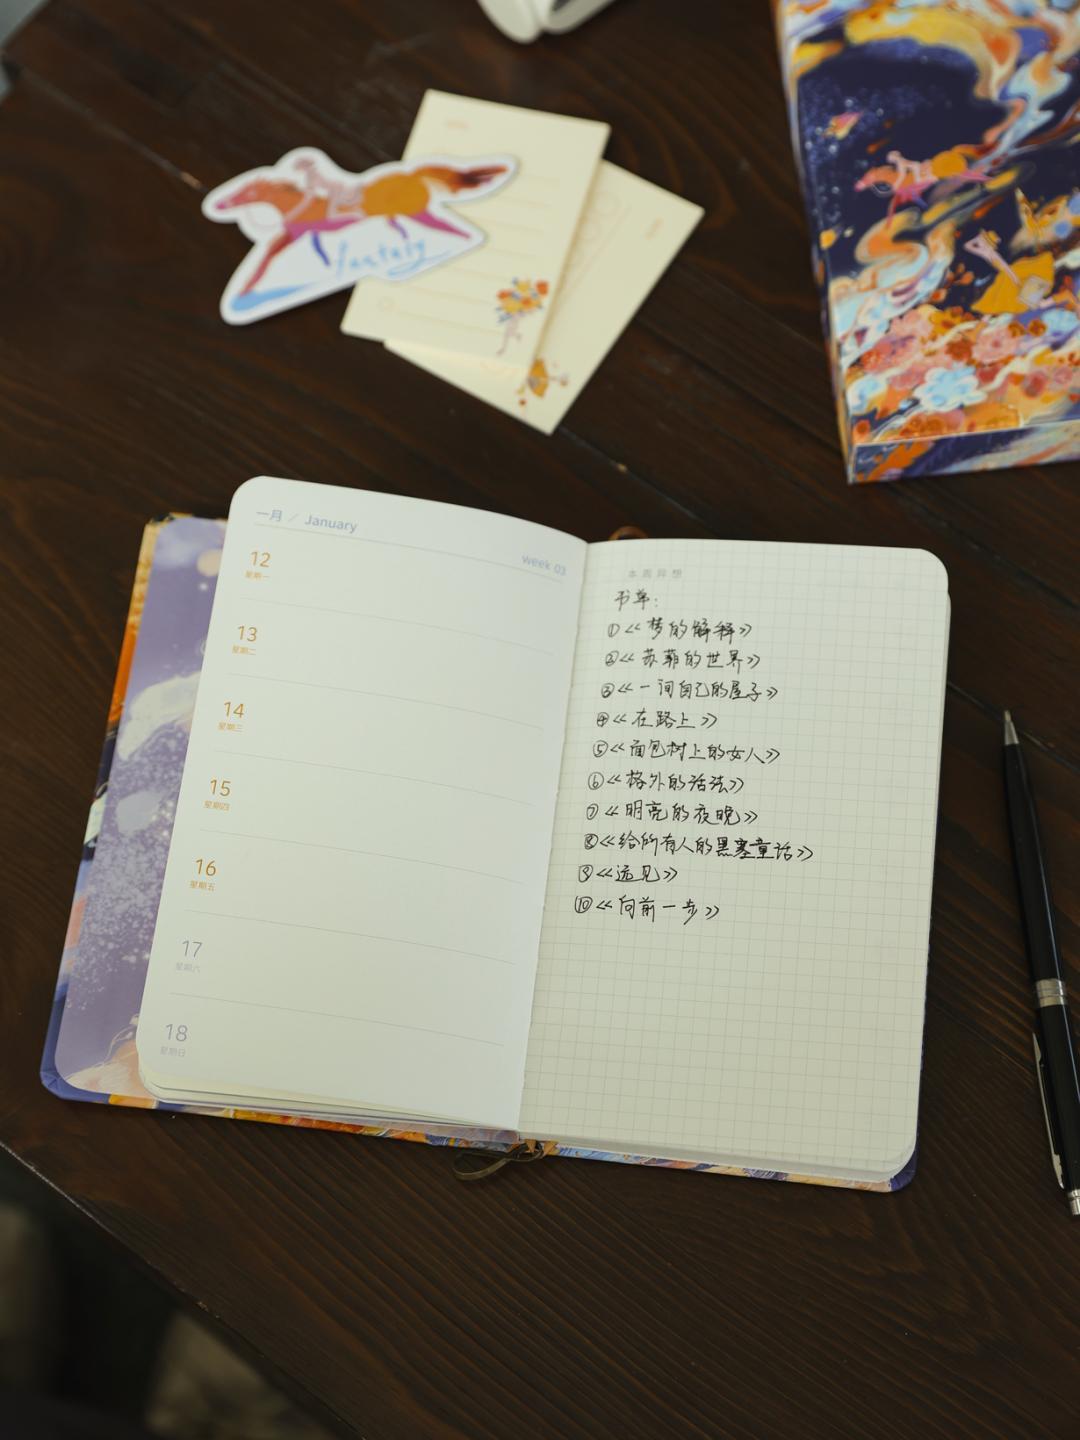 fantasy
一月 / January
week 03
12
星期一
13
星期二
14
星期三
15
星期四
16
星期五
17
星期六
18
星期日
本周异想
书单：
①《梦的解释》
②《苏菲的世界》
③《一间自己的屋子》
④《在路上》
⑤《面包树上的女人》
⑥《格外的活法》
⑦《明亮的夜晚》
⑧《给所有人的黑塞童话》
⑨《远见》
⑩《向前一步》